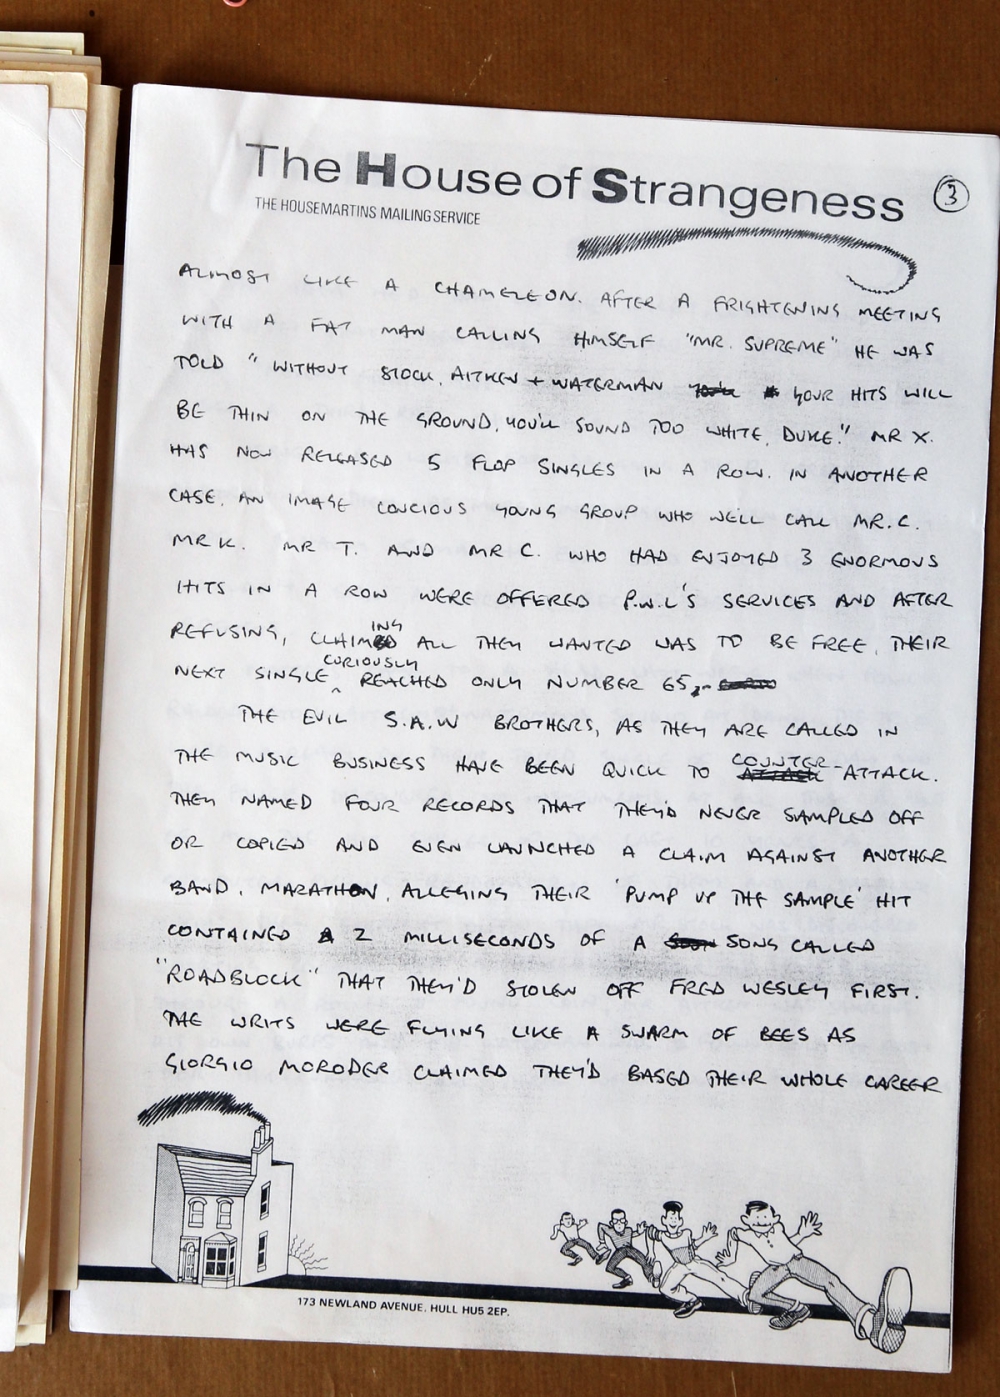 The House of Strangeness
3
THE HOUSEMARTINS MAILING SERVICE
ALMOST LIKE A CHAMELEON. AFTER A FRIGHTENING MEETING
WITH A FAT MAN CALLING HIMSELF "MR. SUPREME" HE WAS
TOLD "WITHOUT STOCK, AITKEN + WATERMAN YOUR HITS WILL
BE THIN ON THE GROUND, YOU'LL SOUND TOO WHITE, DUKE." MR X.
HAS NOW RELEASED 5 FLOP SINGLES IN A ROW. IN ANOTHER
CASE, AN IMAGE CONCIOUS YOUNG GROUP WHO WE'LL CALL MR. C.
MR K. MR T. AND MR C. WHO HAD ENJOYED 3 ENORMOUS
HITS IN A ROW WERE OFFERED P.W.L'S SERVICES AND AFTER
REFUSING, CLAIMING ALL THEY WANTED WAS TO BE FREE, THEIR
NEXT SINGLE CURIOUSLY REACHED ONLY NUMBER 65,
THE EVIL S.A.W BROTHERS, AS THEY ARE CALLED IN
THE MUSIC BUSINESS HAVE BEEN QUICK TO COUNTER-ATTACK.
THEY NAMED FOUR RECORDS THAT THEY'D NEVER SAMPLED OFF
OR COPIED AND EVEN LAUNCHED A CLAIM AGAINST ANOTHER
BAND, MARATHON, ALLEGING THEIR 'PUMP UP THE SAMPLE' HIT
CONTAINED 2 MILLISECONDS OF A SONG CALLED
"ROADBLOCK" THAT THEY'D STOLEN OFF FRED WESLEY FIRST.
THE WRITS WERE FLYING LIKE A SWARM OF BEES AS
GIORGIO MORODER CLAIMED THEY'D BASED THEIR WHOLE CAREER
173 NEWLAND AVENUE, HULL HU5 2EP.